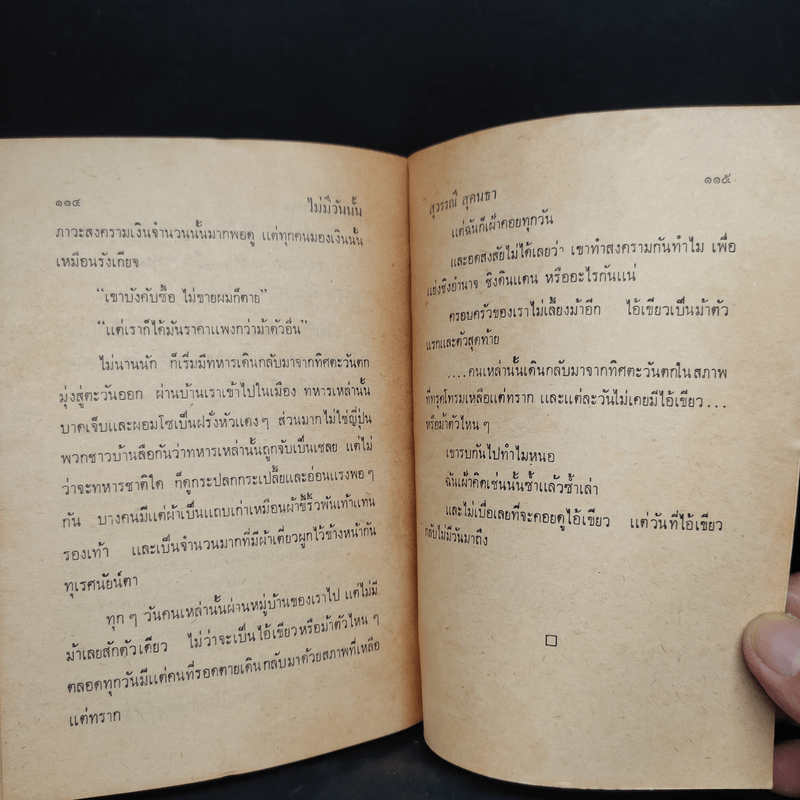 ๑๑๔ ไม่มีวันนั้น
ภาวะสงครามเงินจำนวนนั้นมากพอดู แต่ทุกคนมองเงินนั้น
เหมือนรังเกียจ
“เขาบังคับซื้อ ไม่ขายผมก็ตาย”
“แต่เราก็ได้มันราคาแพงกว่าม้าตัวอื่น”
ไม่นานนัก ก็เริ่มมีทหารเดินกลับมาจากทิศตะวันตก
มุ่งสู่ตะวันออก ผ่านบ้านเราเข้าไปในเมือง ทหารเหล่านั้น
บาดเจ็บและผอมโซเป็นฝรั่งหัวแดงๆ ส่วนมากไม่ใช่ญี่ปุ่น
พวกชาวบ้านลือกันว่าทหารเหล่านั้นถูกจับเป็นเชลย แต่ไม่
ว่าจะทหารชาติใด ก็ดูกระปลกกระเปลี้ยและอ่อนแรงพอๆ
กัน บางคนมีแต่ผ้าเป็นแถบเก่าเหมือนผ้าขี้ริ้วพันเท้าแทน
รองเท้า และเป็นจำนวนมากที่มีผ้าเตี่ยวผูกไว้ข้างหน้ากัน
ทุเรศนัยน์ตา
ทุกๆ วันคนเหล่านั้นผ่านหมู่บ้านของเราไป แต่ไม่มี
ม้าเลยสักตัวเดียว ไม่ว่าจะเป็นไอ้เขียวหรือม้าตัวไหนๆ
ตลอดทุกวันมีแต่คนที่รอดตายเดินกลับมาด้วยสภาพที่เหลือ
แต่ทราก
สุวรรณี สุคนธา ๑๑๕
แต่ฉันก็เฝ้าคอยทุกวัน
และอดสงสัยไม่ได้เลยว่า เขาทำสงครามกันทำไม เพื่อ
แย่งชิงอำนาจ ชิงดินแดน หรืออะไรกันแน่
ครอบครัวของเราไม่เลี้ยงม้าอีก ไอ้เขียวเป็นม้าตัว
แรกและตัวสุดท้าย
....คนเหล่านั้นเดินกลับมาจากทิศตะวันตกในสภาพ
ที่ทรุดโทรมเหลือแต่ทราก และแต่ละวันไม่เคยมีไอ้เขียว...
หรือม้าตัวไหนๆ
เขารบกันไปทำไมหนอ
ฉันเฝ้าคิดเช่นนั้นซ้ำแล้วซ้ำเล่า
และไม่เบื่อเลยที่จะคอยดูไอ้เขียว แต่วันที่ไอ้เขียว
กลับไม่มีวันมาถึง